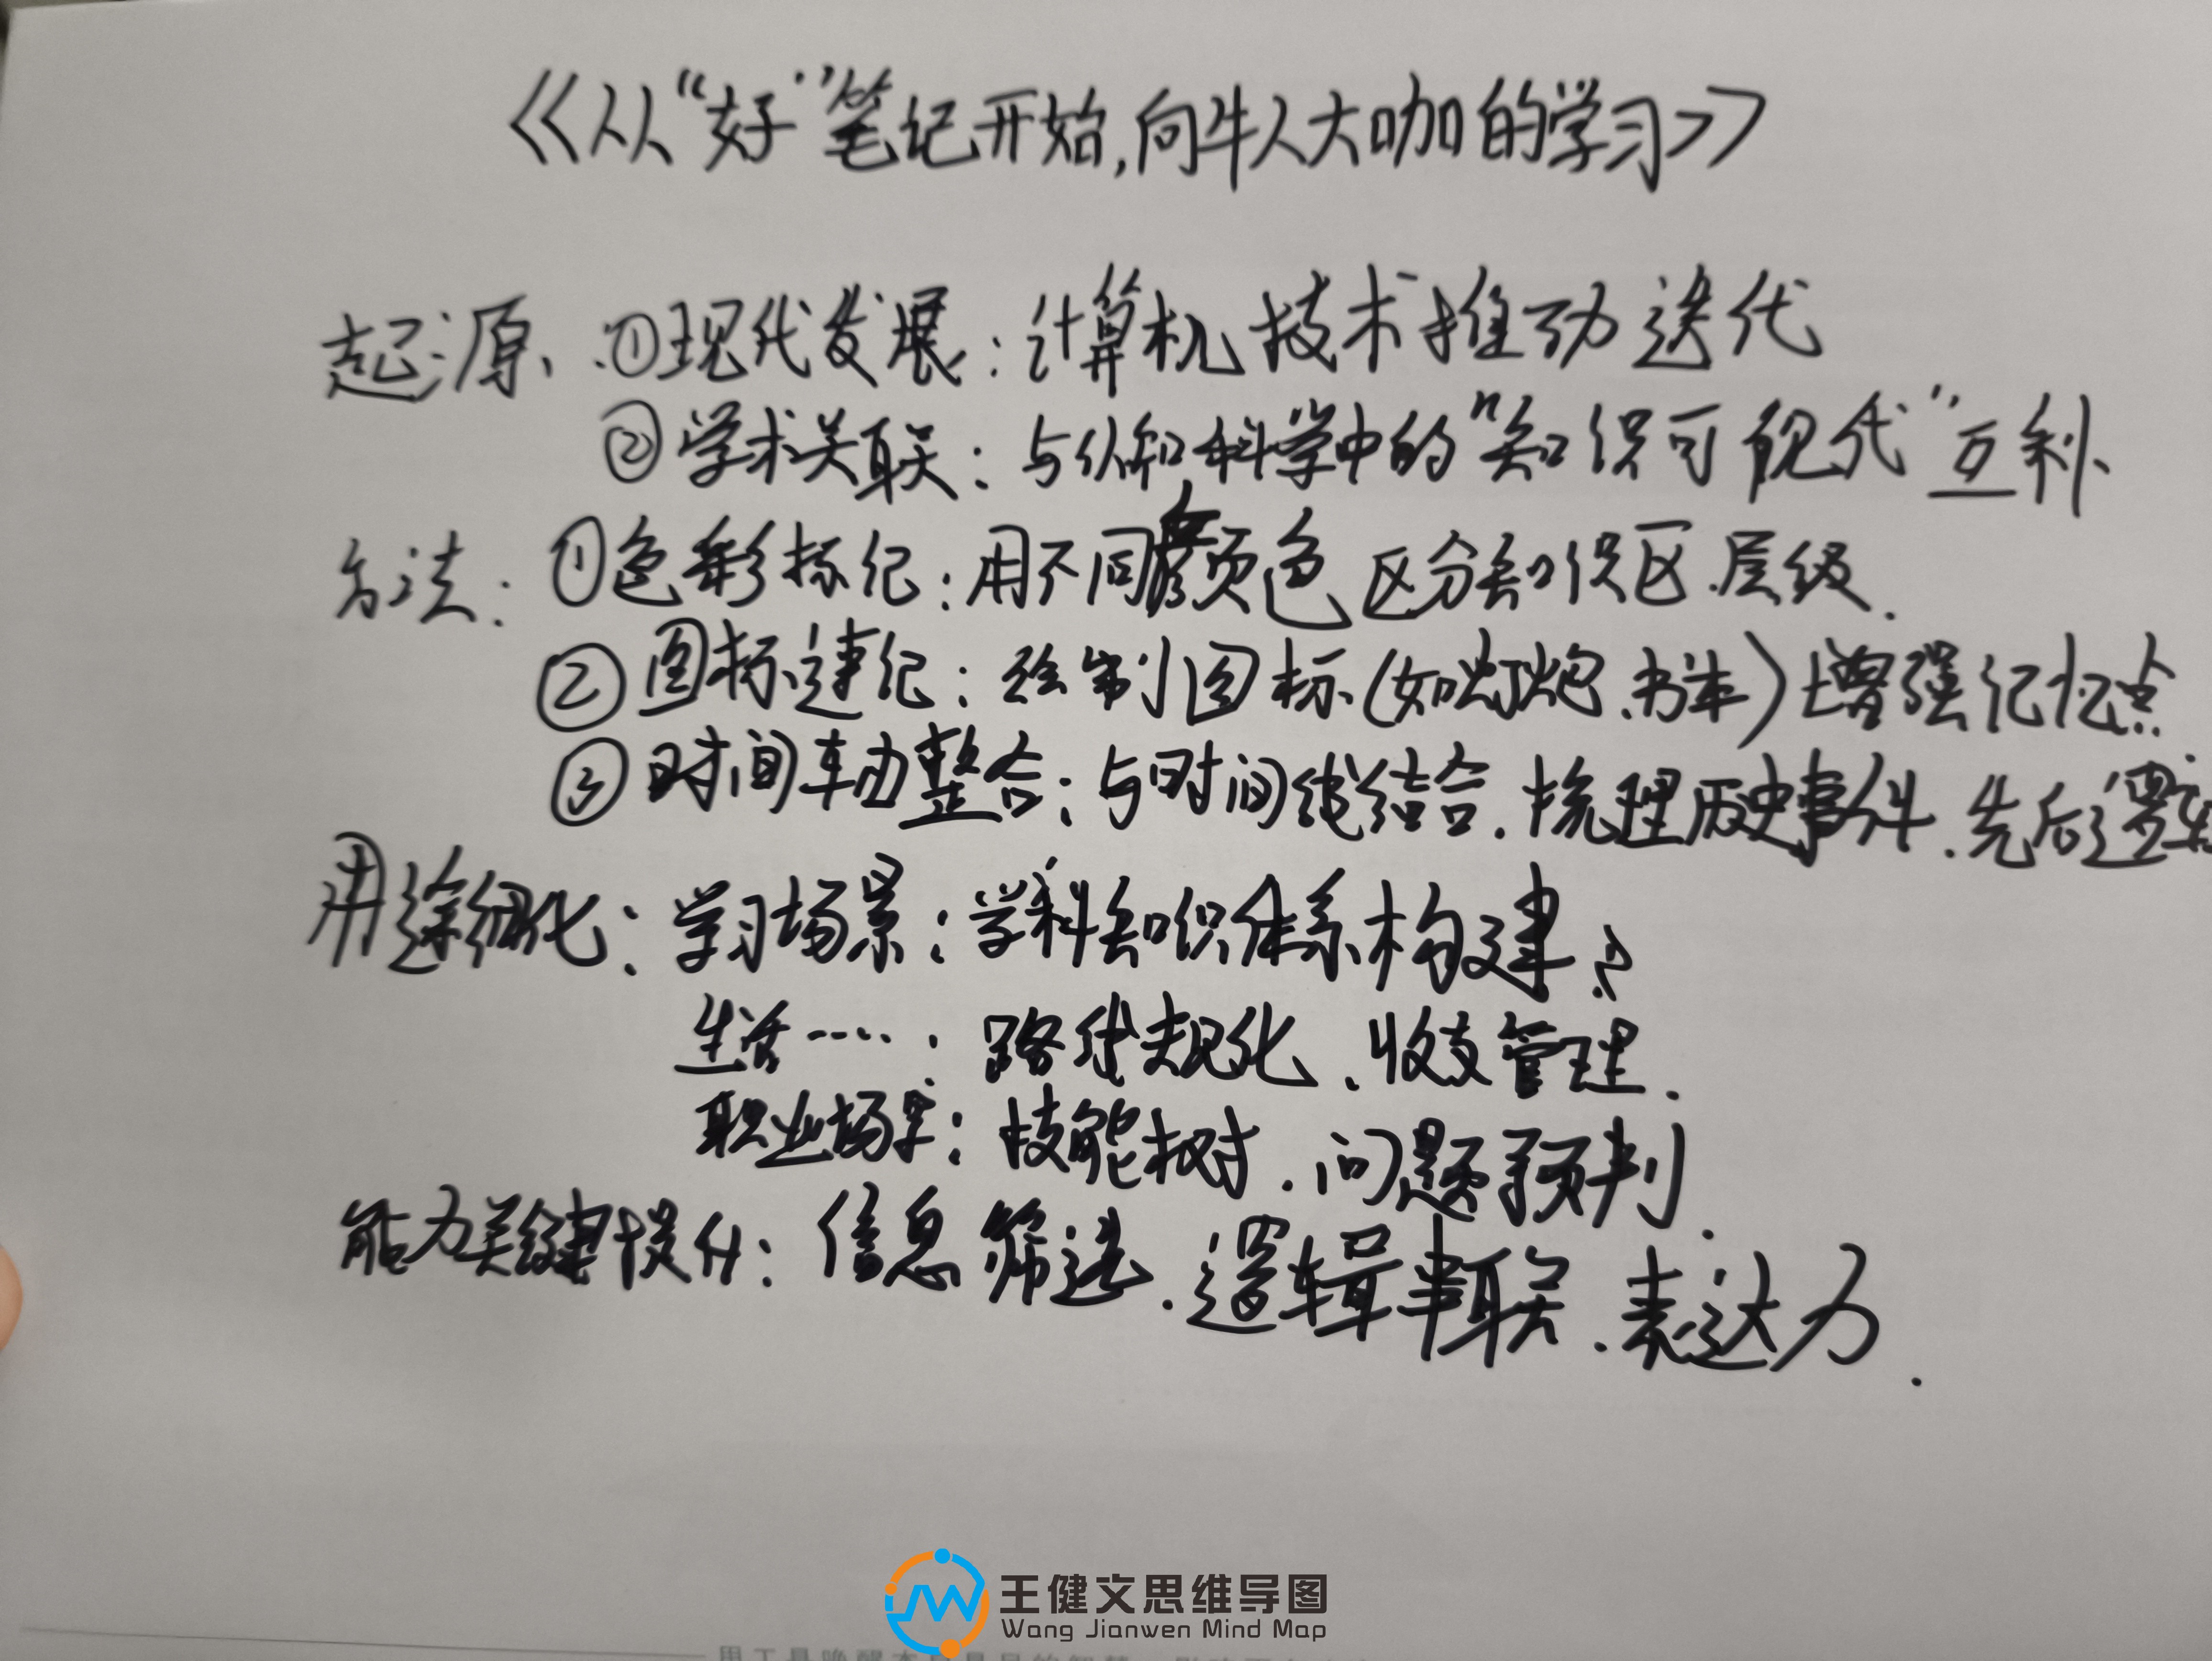 《从“好”笔记开始,向牛人大咖的学习》
起源、①现代发展:计算机技术推动迭代
②学术关联:与认知科学中的“知识可视化”互补、
方法:①色彩标记:用不同颜色区分知识区.层级.
②图标速记:绘制图标(如灯炮.书本)增强记忆点
③时间轴整合:与时间线结合.梳理历史事件.先后逻辑
用途细化:学习场景:学科知识体系构建.
生活····:路线规化、收支管理.
职业场景:技能树.问题预判.
能力关键提升:信息筛选.逻辑串联.表达力.
王健文思维导图
Wang Jianwen Mind Map